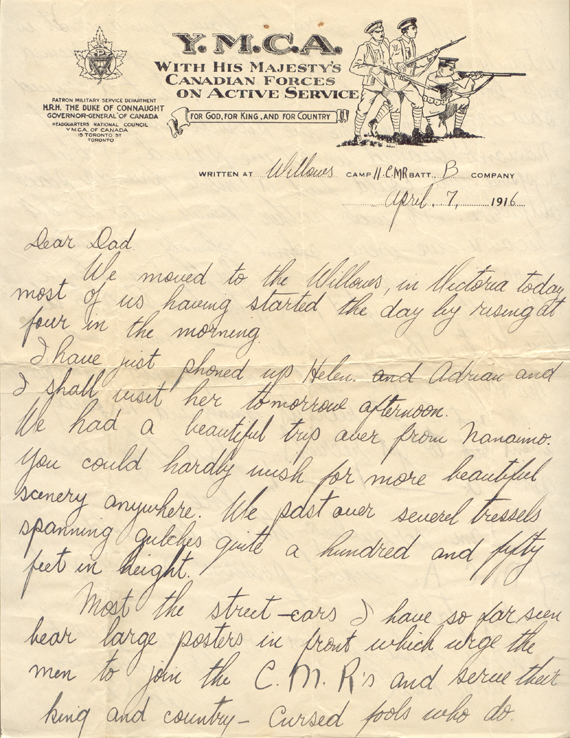 Y.M.C.A.
WITH HIS MAJESTY'S
CANADIAN FORCES
ON ACTIVE SERVICE
FOR GOD, FOR KING, AND FOR COUNTRY
PATRON MILITARY SERVICE DEPARTMENT
H.R.H. THE DUKE OF CONNAUGHT
GOVERNOR-GENERAL OF CANADA
HEADQUARTERS NATIONAL COUNCIL
Y.M.C.A. OF CANADA
15 TORONTO ST
TORONTO
WRITTEN AT Willows CAMP 11.C.M.R BATT. B COMPANY
April 7, 1916
Dear Dad
We moved to the Willows, in Victoria today
most of us having started the day by rising at
four in the morning.
I have just phoned up Helen. and Adrian and
I shall visit her tomorrow afternoon.
We had a beautiful trip over from Nanaimo.
You could hardly wish for more beautiful
scenery anywhere. We past over severel tressels
spanning gulches quite a hundred and fifty
feet in height.
Most the street-cars I have so far seen
bear large posters in front which urge the
men to join the C.M.R's and serve their
king and country - Cursed fools who do.